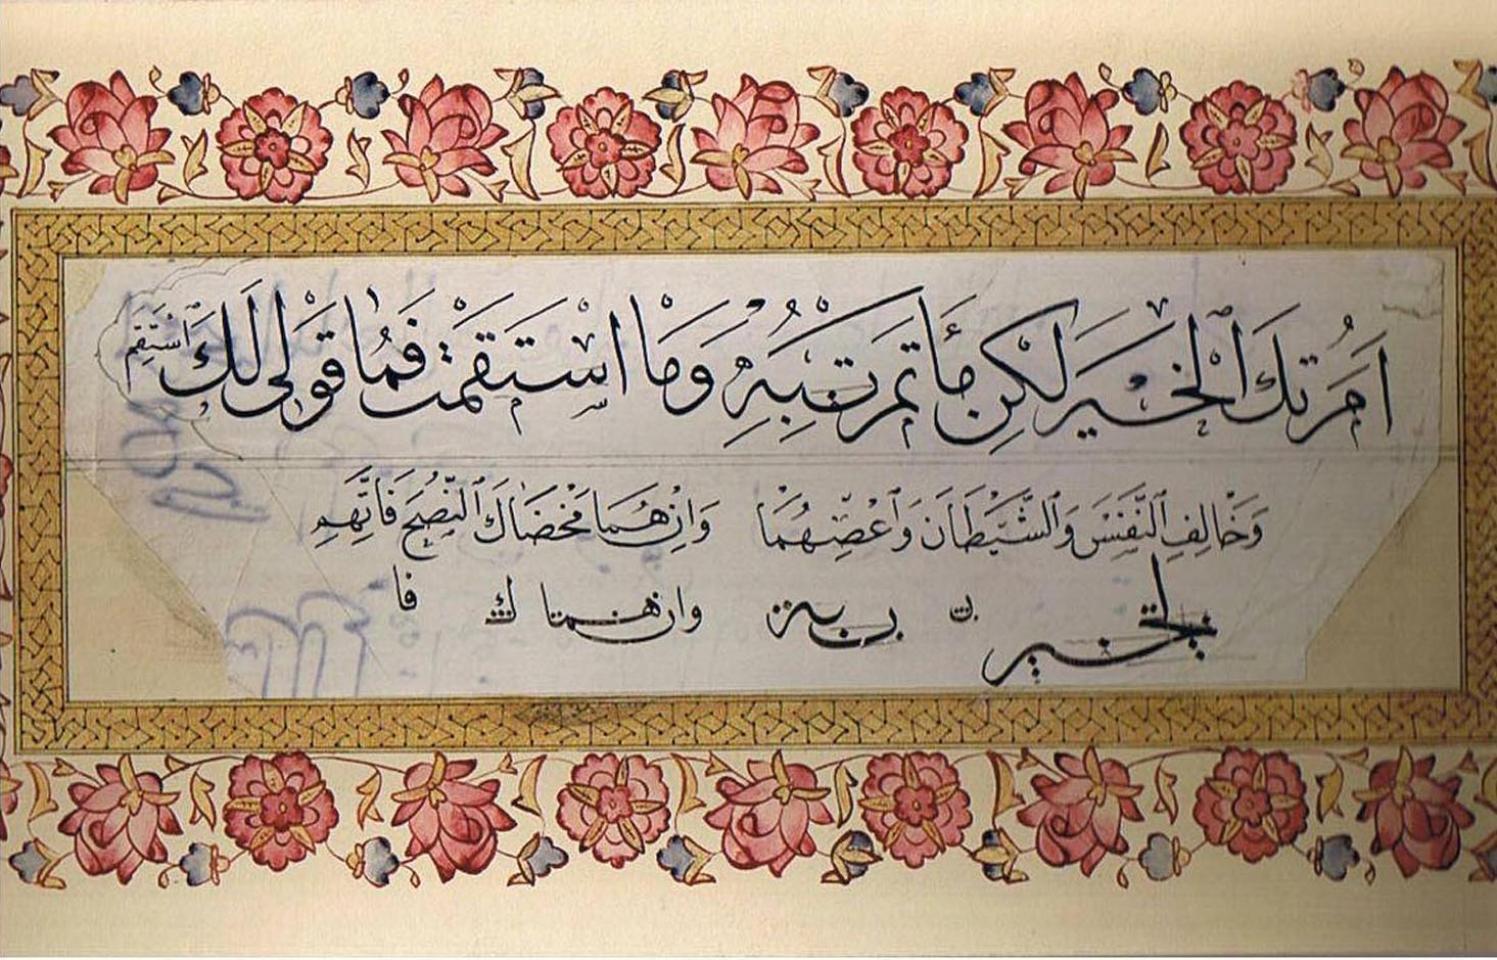 اَمَرْتُكَ ٱلْخَيْرَ لٰكِنْ مَا ئْتَمَرْتُ بِهِ وَمَا اسْتَقَمْتُ فَمَا قَوْلِى لَكَ ٱسْتَقِمِ
وَخَالِفِ ٱلنَّفْسَ وَٱلشَّيْطَانَ وَٱعْصِهِمَا وَاِنْ هُمَا مَحَضَاكَ ٱلنُّصْحَ فَاتَّهِمِ
وان هما ك فا